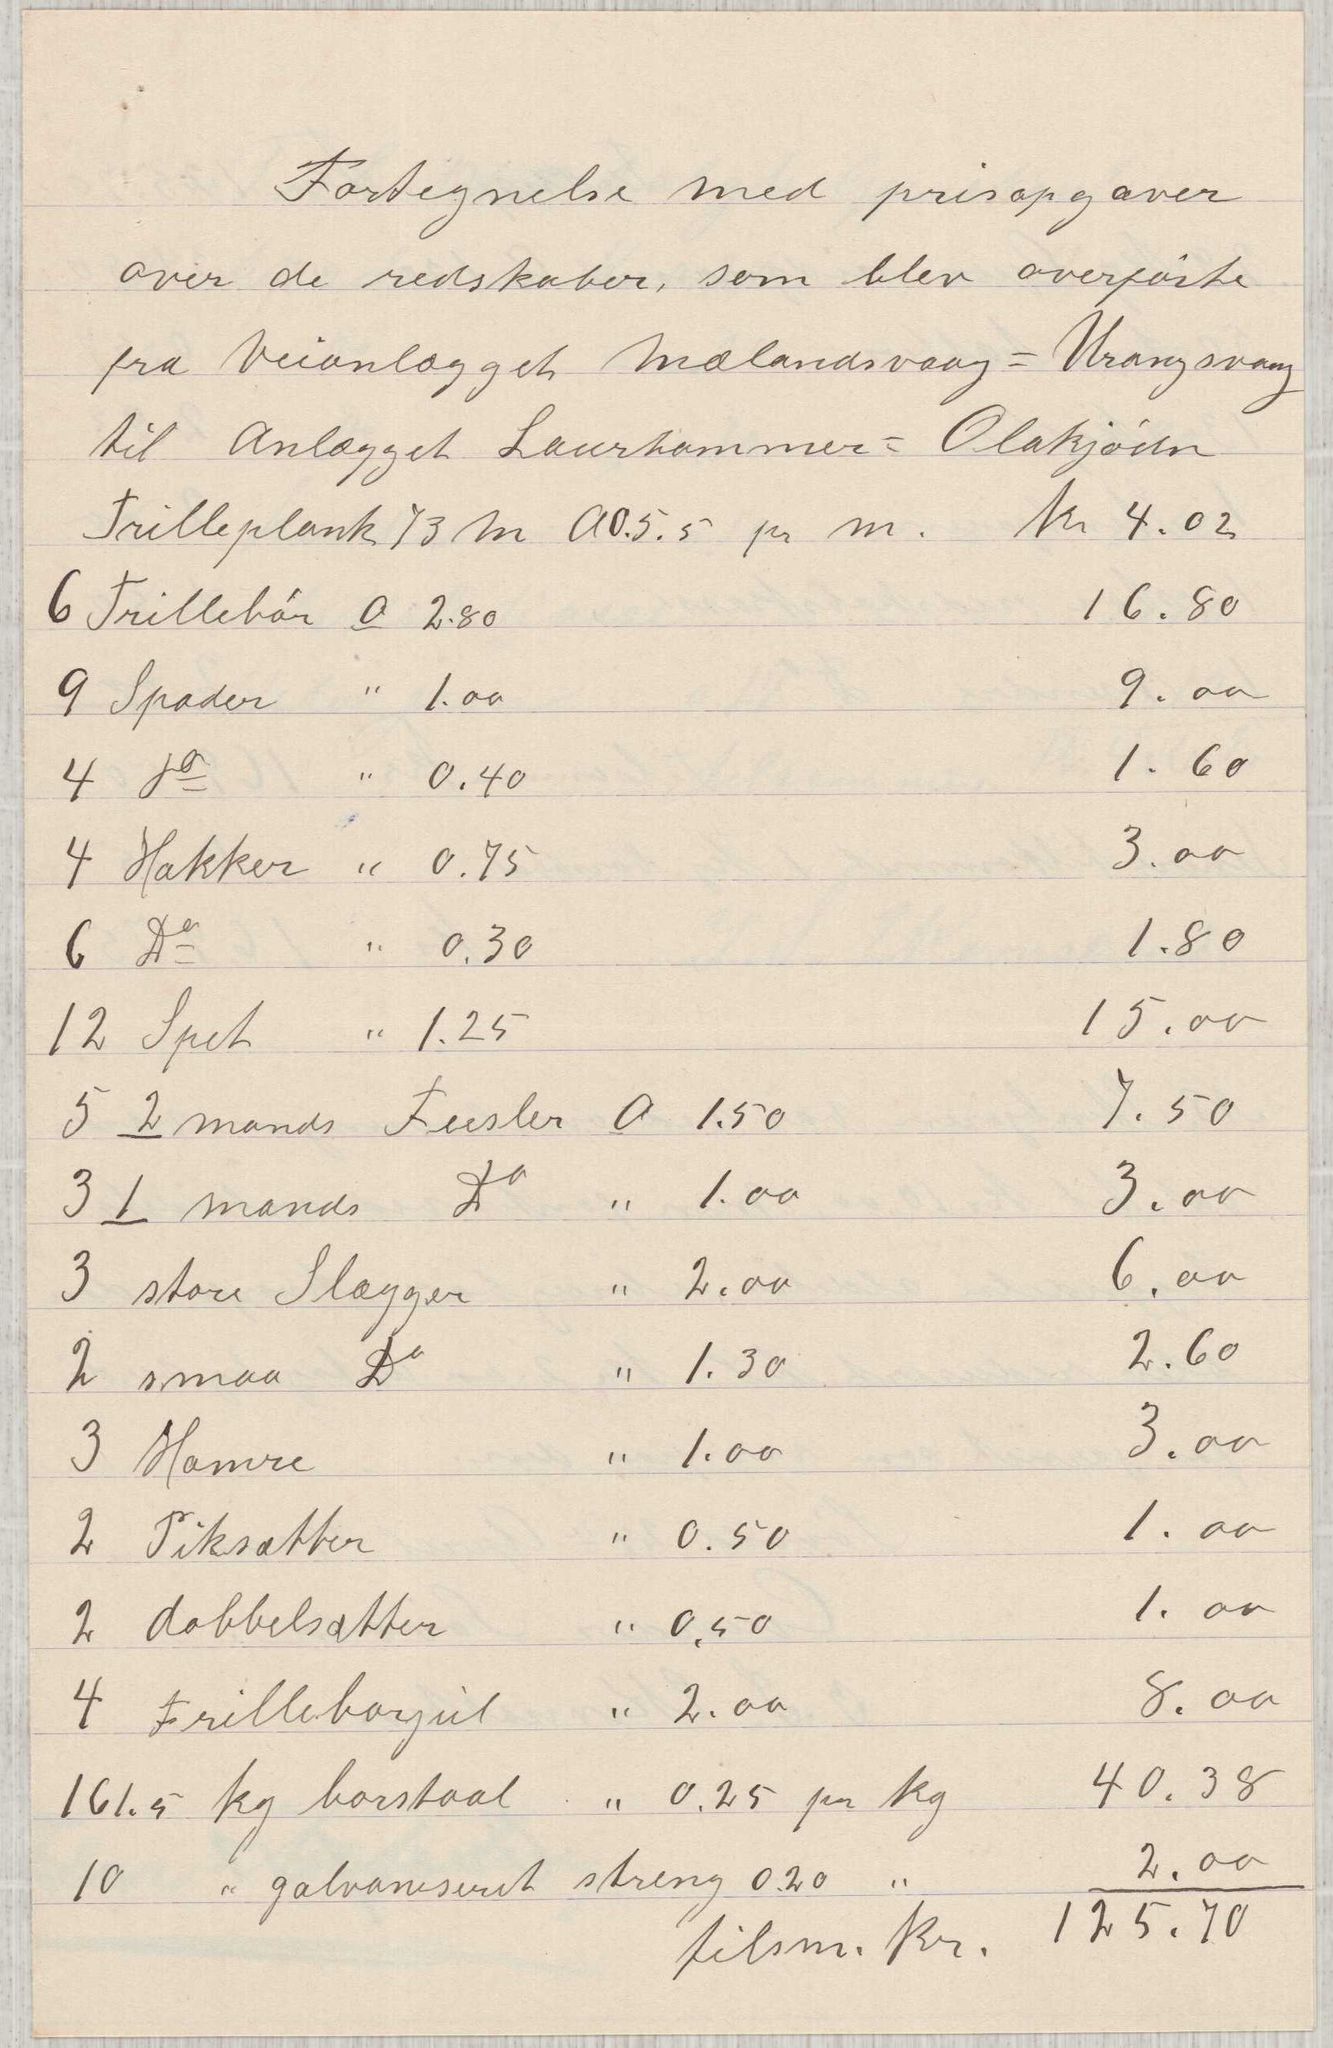 Fortegnelse med prisopgaver
over de redskaber, som blev overførte
fra Veianlægget Mælandsvaag = Urangsvaag
til Anlægget Laurhammer = Olakjødn
Trilleplank 73 m a 0.5.5 pr m. Kr 4.02
6 Trillebør a 2.80 16.80
9 Spader " 1.00 9.00
4 do " 0.40 1.60
4 Hakker " 0.75 3.00
6 Do " 0.30 1.80
12 Spet " 1.25 15.00
5 2 mands Feisler a 1.50 7.50
3 1 mands Do " 1.00 3.00
3 store Slægger " 2.00 6.00
2 smaa Do " 1.30 2.60
3 Hamre " 1.00 3.00
2 Piksætter " 0.50 1.00
2 dobbelsætter " 0.50 1.00
4 Trilleborjul " 2.00 8.00
161.5 kg borstaal " 0.25 pr kg 40.38
10 " galvaniseret streng 0.20 " 2.00
tilsm. Kr. 125.70